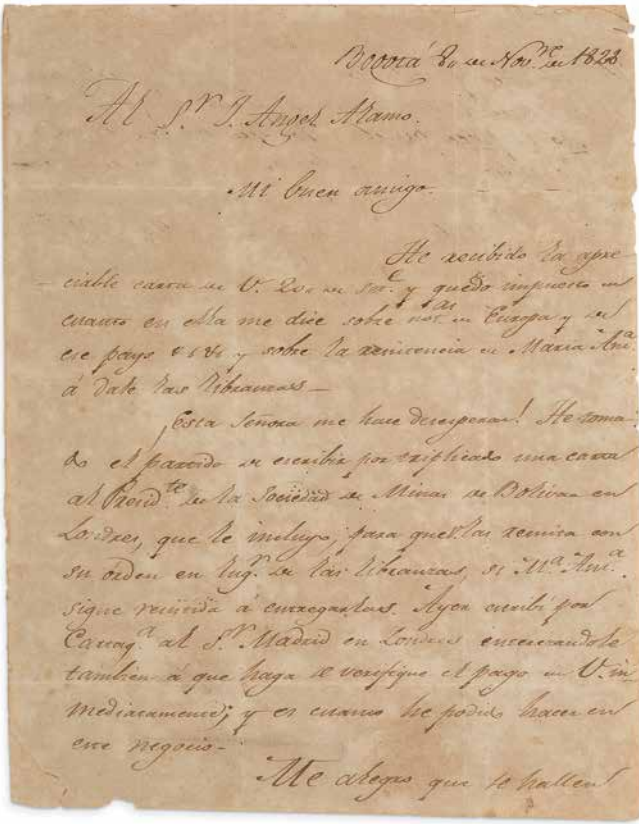 Bogotá 8„ de Nov.re de 1828
Al S.r J. Angel Alamo.
Mi buen amigo.
He recibido la apre
ciable carta de V. 20„ de y quedo impuesto de
cuanto en ella me dice sobre not.as de Europa y de
ese pays &.&. y sobre la renitencia de Maria Ant.a
á darle las libranzas —
¡Esta Señora me hace desesperar! He toma
do el partido de escribir por triplicado una carta
al Presid.te de la Sociedad de Minas de Bolivar en
Londres, que le incluyo, para que las remita con
su órden en lug.r de las libranzas, si M.a Ant.a
sigue á entregarlas. Ayer escribí por
Cartag.a al S.r Madrid en Londres
tambien á que haga se verifique el pago de V. in
mediatamente; y es cuanto he podido hacer en
este negocio —
Me alegro que se hallen